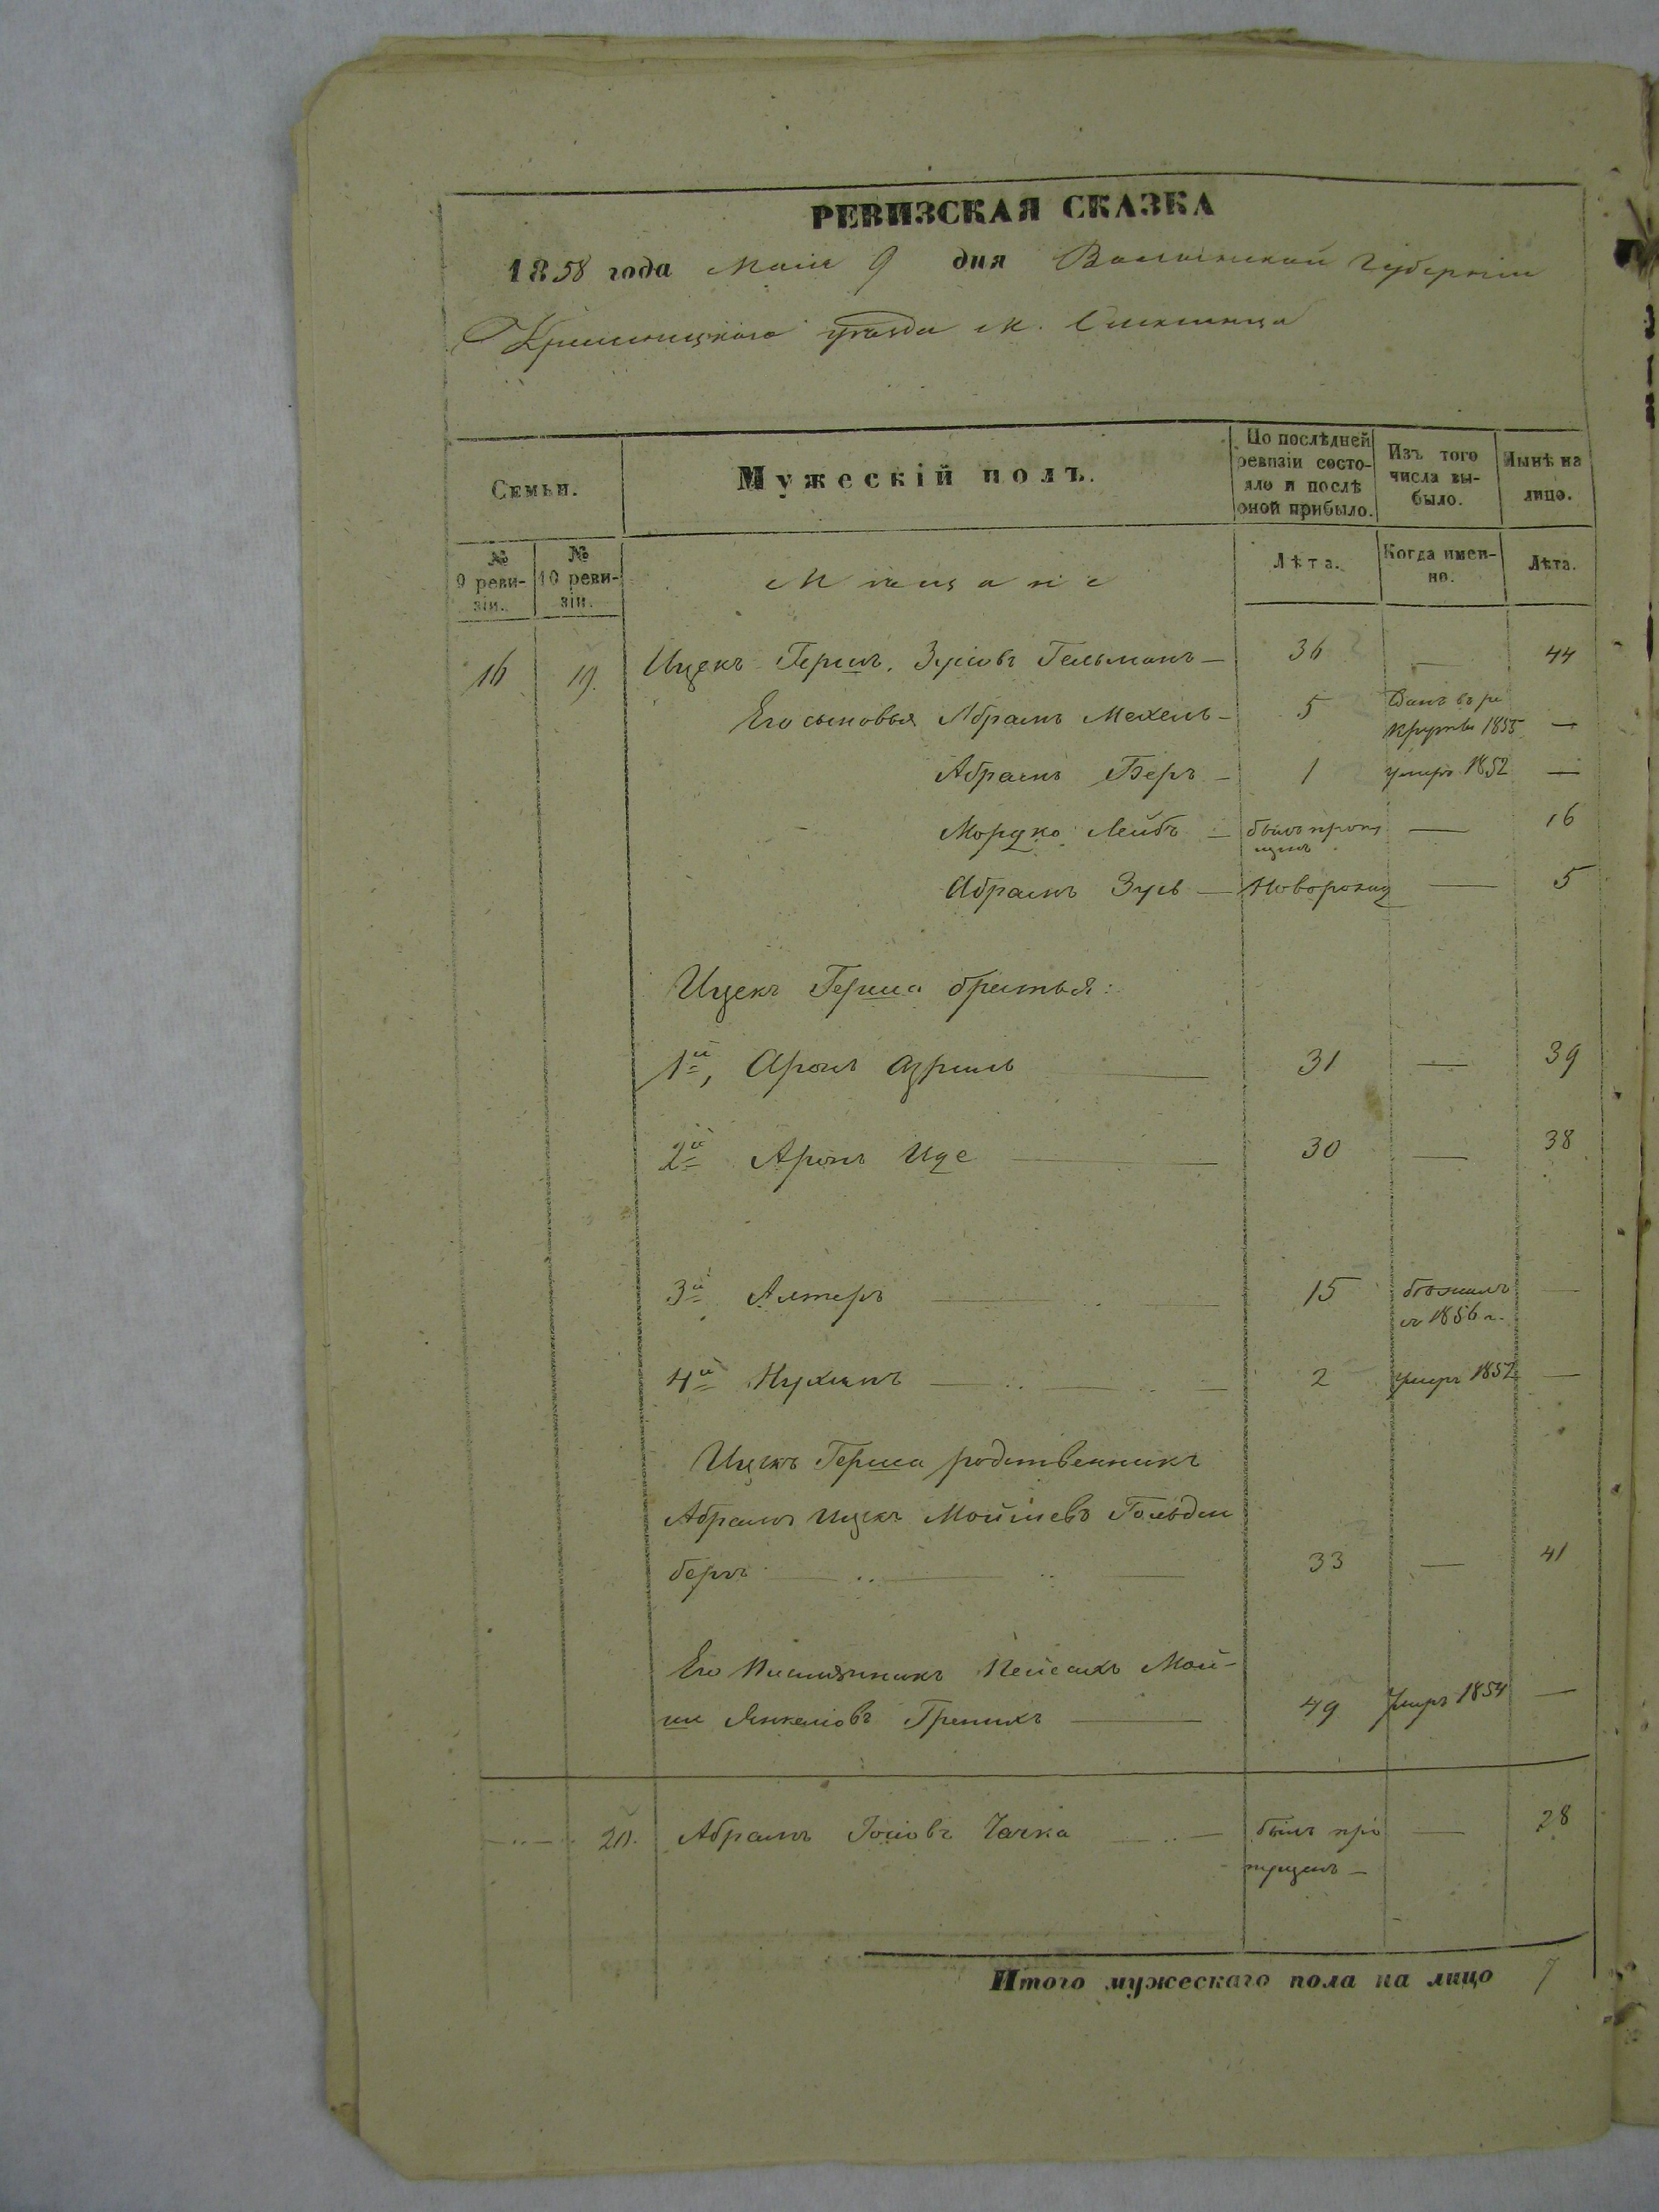 РЕВИЗСКАЯ СКАЗКА
1858 года Маія 9 дня Волынской Губерніи
Кременецкаго уѣзда м.
Семьи.
Мужескій полъ.
По послѣдней ревизіи состояло и послѣ оной прибыло.
Изъ того числа выбыло.
Нынѣ на лицо.
№ 9 ревизіи.
№ 10 ревизіи.
Мѣщане
Лѣта.
Когда именно.
Лѣта.
16 19. Ицекъ Гершъ Зусіовъ Гельманъ — 36 — 44
Его сыновья Абрамъ Мехель — 5 Данъ въ рекруты 1855 —
Абрамъ Беръ — 1 умеръ 1852 —
Мордко Лейбъ — былъ пропущенъ — 16
Абрамъ Зусь — Новорожд — 5
Ицекъ Герша братья:
1й, Аронъ Азриль — 31 — 39
2й Аронъ Иде — 30 — 38
3й Алтеръ — 15 бѣжалъ въ 1856 г. —
4й Нухимъ — 2 умеръ 1852 —
Ицекъ Герша родственникъ
Абрамъ Ицекъ Мойшевъ Гольден
бергъ — 33 — 41
Его Племянникъ Пейсахъ Мой-
ше Янкеліовъ — 49 Умеръ 1854 —
20. Абрамъ Іосіовъ — былъ пропущенъ — — 28
Итого мужескаго пола на лицо 7